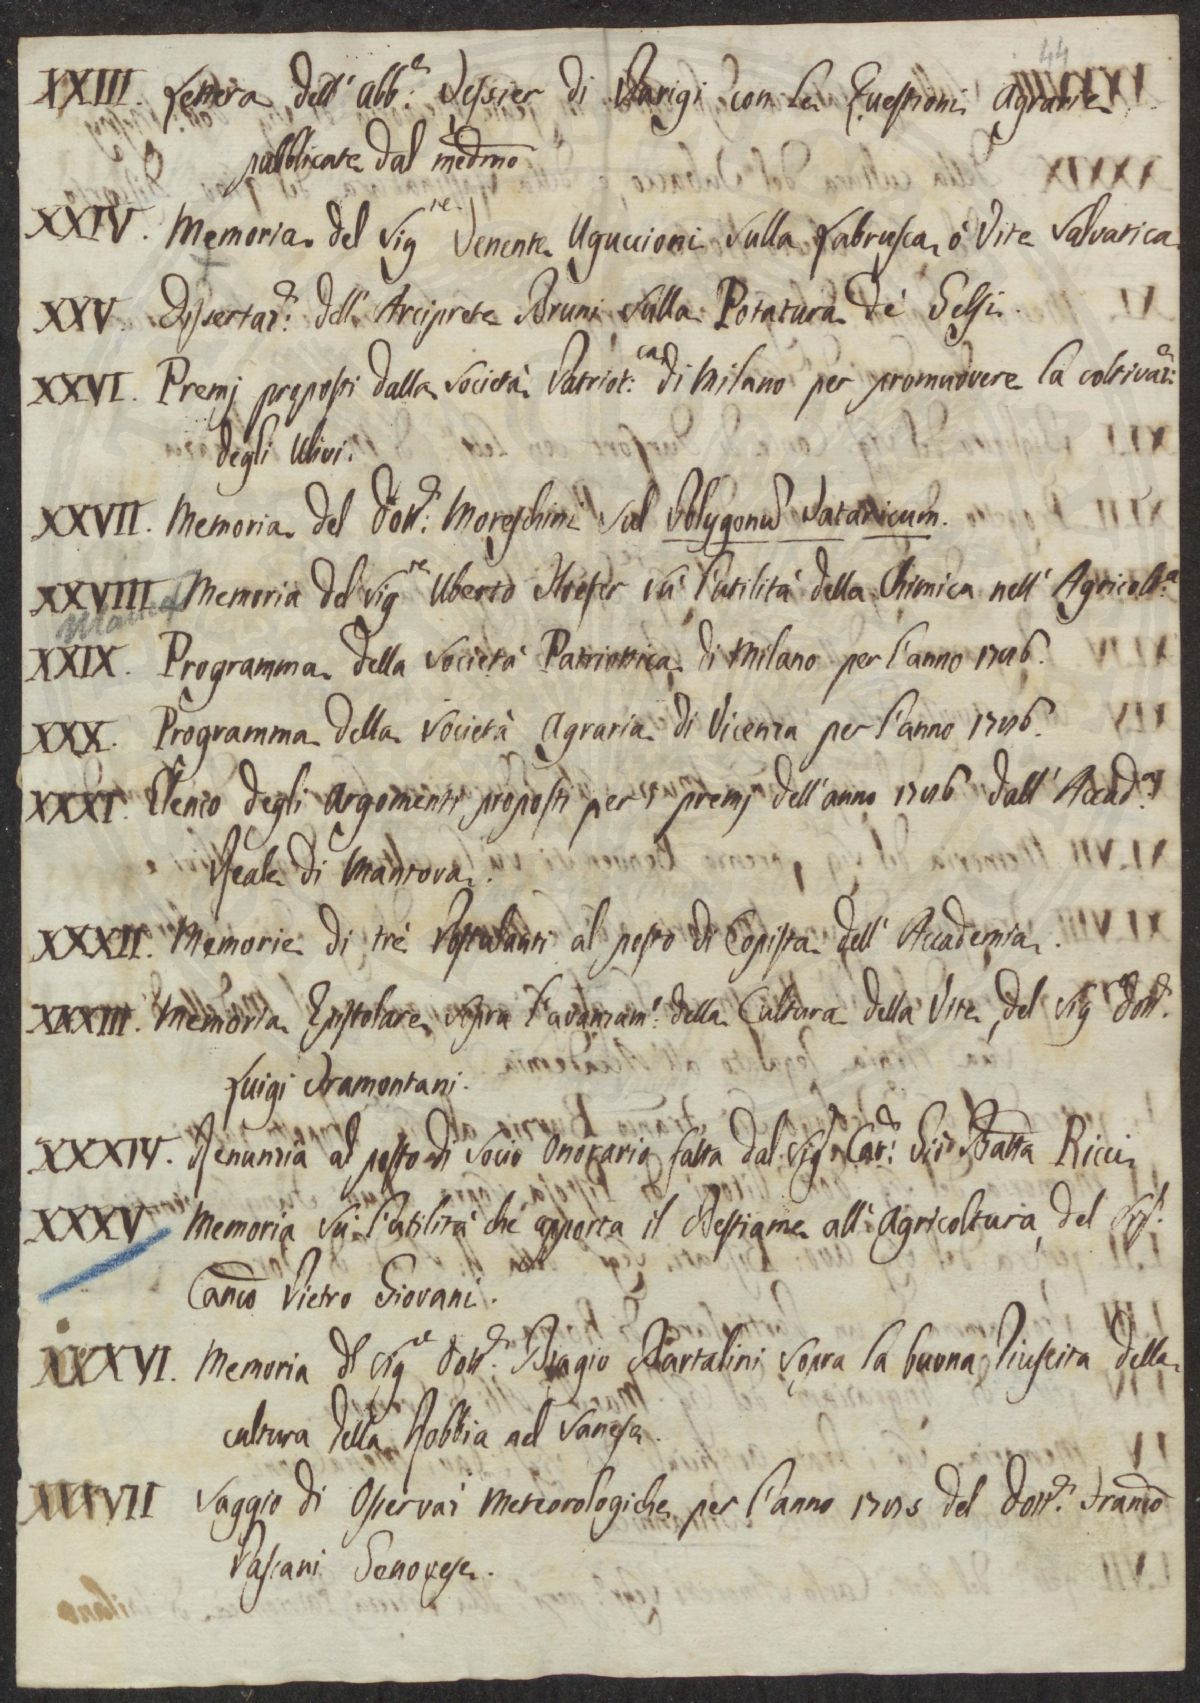 44
XXIII. Lettera dell' Abb.e Tessier di Parigi con le Questioni agrarie
pubblicate dal medmo
XXIV. Memoria del Sigre Tenente Uguccioni sulla Labrusca, o Vite Salvatica
XXV. Dissertaz.e dell' Arciprete Bruni sulla Potatura de' Gelsi.
XXVI. Premj proposti dalla Società Patriot:ca di Milano per promuovere la coltivaz:e
degli Ulivi.
XXVII. Memoria del Dott.e Moreschini sul Polygonum Tataricum.
XXVIII Memoria del Sigre Uberto Hoefer su l'utilità della Chimica nell' Agricolt.a
XXIX. Programma della Società Patriottica di Milano per l'anno 1786.
XXX. Programma della Società Agraria di Vicenza per l'anno 1786.
XXXI. Elenco degli Argomenti proposti per i premj dell' anno 1786 dall' Accad.a
Reale di Mantova.
XXXII. Memorie di tré Postulanti al posto di Copista dell' Accademia.
XXXIII. Memoria Epistolare sopra l'avanzam.o della Cultura della Vite, del Sigre Dott.
Luigi Tramontani.
XXXIV. Renunzia al posto di Socio Onorario fatta dal Sigr Cav: Gio Batta Ricci
XXXV Memoria su l'utilità che apporta il Bestiame all' Agricoltura, del Sigr.
Canco Pietro Giovani.
XXXVI. Memoria del Sige Dott.e Biagio Bartalini sopra la buona riuscita della
cultura della Robbia nel Sanese.
XXXVII Saggio di Osservaz. Meteorologiche per l'anno 1785 del Dott.e Franco
Pascani Genovese.